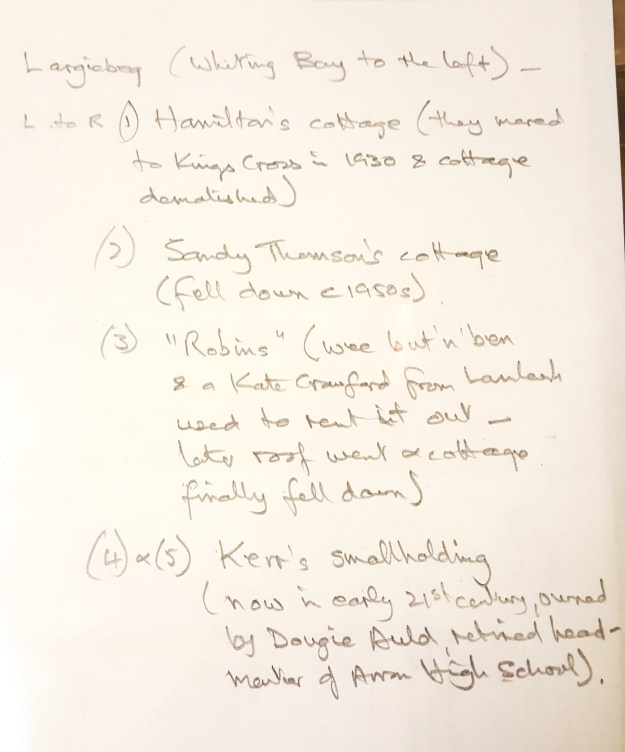 Largiebeg (Whiting Bay to the left) –
L. to R (1) Hamilton's cottage (they moved
to Kings Cross in 1930 & cottage
demolished)
(2) Sandy Thomson's cottage
(fell down c1950s).
(3) "Robins" (wee but 'n' ben
& a Kate Crawford from Lamlash
used to rent it out –
later roof went & cottage
finally fell down)
(4) & (5) Kerr's smallholding
(now in early 21st century, owned
by Dougie Auld, retired head-
master of Arran High School).